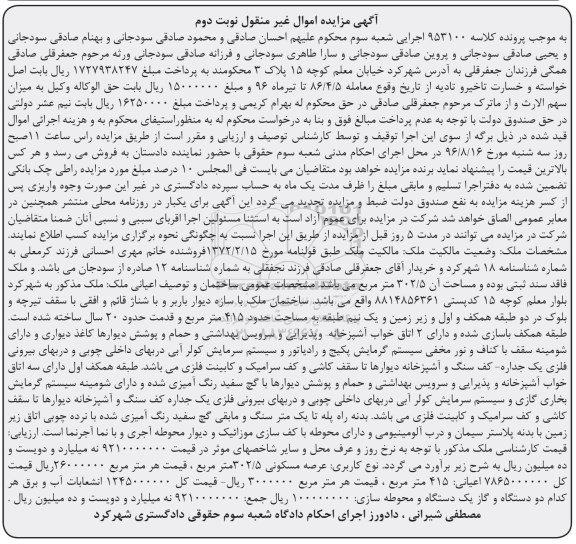 آگهی مزایده اموال غیر منقول نوبت دوم
به موجب پرونده کلاسه ۹۵۳۱۰۰ اجرایی شعبه سوم محکوم علیهم احسان صادقی و محمود صادقی سودجانی و بهنام صادقی سودجانی
و یحیی صادقی سودجانی و پروین صادقی سودجانی و سارا طاهری سودجانی و فرزانه صادقی سودجانی ورثه مرحوم جعفرقلی صادقی
همگی فرزندان جعفرقلی به آدرس شهرکرد خیابان معلم کوچه ۱۵ پلاک ۳ محکومند به پرداخت مبلغ ۱۷۲۷۹۳۸۲۴۷ ریال بابت اصل
خواسته و خسارت تاخیرو تادیه از تاریخ وقوع معامله ۸۶/۴/۵ تا تیرماه ۹۶ و مبلغ ۱۵۰۰۰۰۰۰ ریال بابت حق الوکاله وکیل به میزان
سهم الارث و از ماترک مرحوم جعفرقلی صادقی در حق محکوم له بهرام کریمی و پرداخت مبلغ ۱۶۲۵۰۰۰۰ ریال بابت نیم عشر دولتی
در حق صندوق دولت با توجه به عدم پرداخت مبالغ فوق و بنا به درخواست محکوم له به منظوراستیفای محکوم به و هزینه اجرائی اموال
قید شده در ذیل برگه از سوی این اجرا توقیف و توسط کارشناس توصیف و ارزیابی و مقرر است از طریق مزایده راس ساعت ۱۱صبح
روز سه شنبه مورخ ۹۶/۸/۱۶ در محل اجرای احکام مدنی شعبه سوم حقوقی با حضور نماینده دادستان به فروش می رسد و هر کس
بالاترین قیمت را پیشنهاد نماید برنده مزایده خواهد بود متقاضیان می بایست فی المجلس ۱۰ درصد مبلغ مورد مزایده راطی چک بانکی
تضمین شده به دفتراجرا تسلیم و مابقی مبلغ را ظرف مدت یک ماه به حساب سپرده دادگستری در غیر این صورت وجوه واریزی پس
از کسر هزینه مزایده به نفع صندوق دولت ضبط و مزایده تجدید می گردد این آگهی برای یکبار در روزنامه محلی منتشر همچنین در
معابر عمومی الصاق خواهد شد شرکت در مزایده برای عموم آزاد است به استثنا مسئولین اجرا اقربای سببی و نسبی آنان ضمنا متقاضیان
شرکت در مزایده می توانند در مدت ۵ روز قبل از مزایده از طریق این اجرا نسبت به چگونگی نحوه برگزاری مزایده کسب اطلاع نمایند.
مشخصات ملک: وضعیت مالکیت ملک: مالکیت ملک طبق قولنامه مورخ ۱۳۷۲/۲/۱۵فروشنده خانم مهری احسانی فرزند کرمعلی به
شماره شناسنامه ۱۸ شهرکرد و خریدار آقای جعفرقلی صادقی فرزند نجفقلی به شماره شناسنامه ۱۲ صادره از سودجان می باشد. و ملک
فاقد سند ثبتی بوده و مساحت آن ۳۰۲/۵ متر مربع می باشد مشخصات عمومی ساختمان و توصیف اعیانی ملک: ملک مذکور به شهرکرد
بلوار معلم کوچه ۱۵ کدپستی ۸۸۱۴۸۵۶۳۶۱ واقع می باشد. ساختمان ملک با سازه دیوار باربر و با شناژ قائم و افقی با سقف تیرچه و
بلوک در دو طبقه همکف و اول و زیر زمین و یک نیم طبقه به مساحت حدود ۴۱۵ متر مربع و قدمت حدود ۲۰ سال ساخته شده است.
طبقه همکف باسازی شده و دارای ۲ اتاق خواب آشپزخانه وپذیرایی و سرویس بهداشتی و حمام و پوشش دیوارها کاغذ دیواری و دارای
شومینه سقف با کناف و نور مخفی سیستم گرمایش پکیج و رادیاتور و سیستم سرمایش کولر آبی دربهای داخلی چوبی و دربهای بیرونی
فلزی یک جداره- کف سنگ و آشپزخانه دیوارها تا سقف کاشی و کف سرامیک و کابینت فلزی می باشد. طبقه همکف اول دارای سه اتاق
خواب آشپزخانه و پذیرایی و سرویس بهداشتی و حمام و پوشش دیوارها با گچ سفید رنگ آمیزی شده و دارای شومینه سیستم گرمایش
بخاری گازی و سیستم سرمایش کولر آبی دربهای داخلی چوبی و دربهای بیرونی فلزی یک جداره کف سنگ و آشپزخانه دیوارها تا سقف
کاشی و کف سرامیک و کابینت فلزی می باشد. بدنه راه پله تا یک متر سنگ و مابقی گچ سفید رنگ آمیزی شده با نرده چوبی اتاق زیر
زمین با بدنه پلاستر سیمان و درب آلومینیومی و دارای محوطه با کف سازی موزائیک و دیوار محوطه آجری و با نما آجرنما است. ارزیابی:
قیمت کارشناسی ملک مذکور با توجه به نرخ روز و عرف محل و سایر شاخصهای موثر در قیمت ۹۲۱۰۰۰۰۰۰۰ نه میلیارد و دویست و
ده میلیون ریال به شرح زیر برآورد می گردد. نوع کاربری: عرصه مسکونی ۳۰۲/۵متر مربع ، قیمت هر متر مربع ۲۶۰۰۰۰۰۰ریال قیمت
کل ۷۸۶۵۰۰۰۰۰۰ اعیانی: ۴۱۵ متر مربع ، قیمت هر متر مربع ۳۰۰۰۰۰۰ ریال- قیمت کل ۱۲۴۵۰۰۰۰۰۰ انشعابات آب و برق هر
کدام دو دستگاه و گاز یک دستگاه و محوطه سازی: ۱۰۰۰۰۰۰۰۰ ریال جمع: ۹۲۱۰۰۰۰۰۰۰ نه میلیارد و دویست و ده میلیون ریال .
مصطفی شیرانی ، دادورز اجرای احکام دادگاه شعبه سوم حقوقی دادگستری شهرکرد